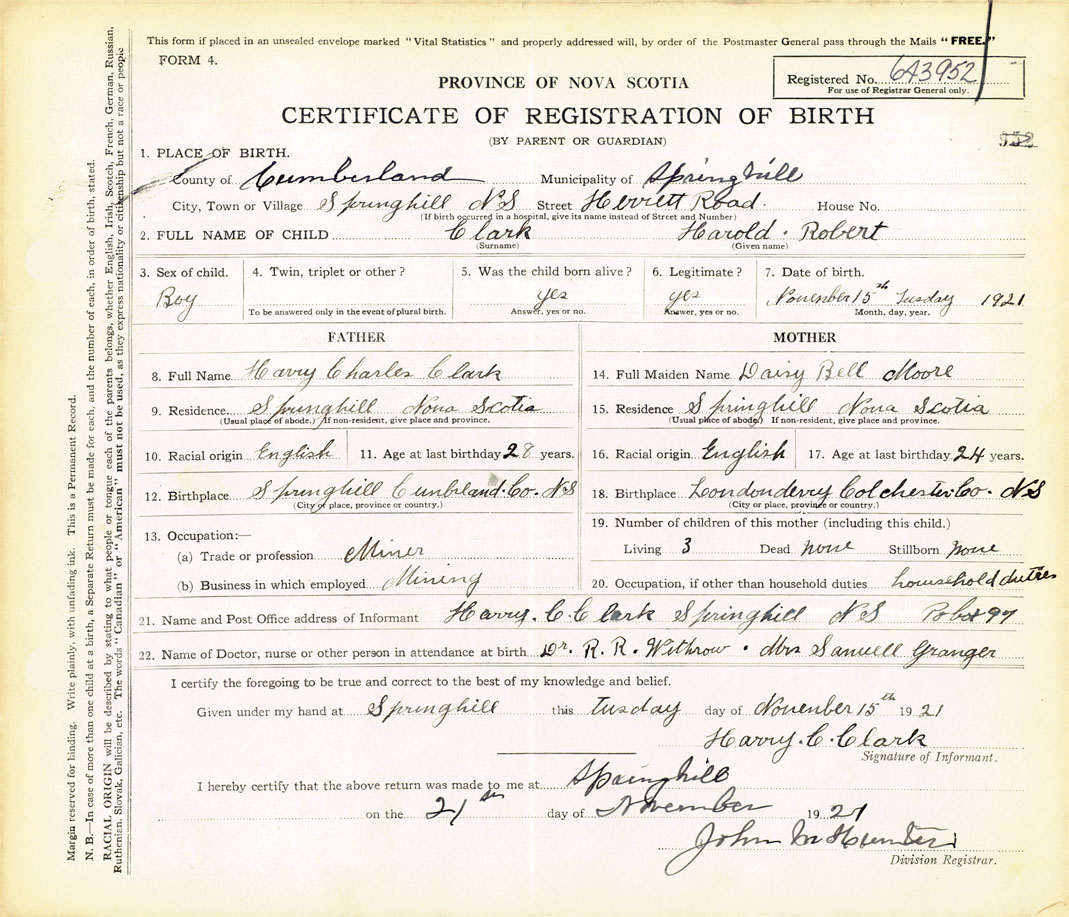 This form if placed in an unsealed envelope marked "Vital Statistics" and properly addressed will, by order of the Postmaster General pass through the Mails "FREE."
FORM 4.
Registered No. 643952
For use of Registrar General only.
PROVINCE OF NOVA SCOTIA
CERTIFICATE OF REGISTRATION OF BIRTH
(BY PARENT OR GUARDIAN)
1. PLACE OF BIRTH.
County of Cumberland Municipality of Springhill
City, Town or Village Springhill NS Street Herrett Road. House No.
(If birth occurred in a hospital, give its name instead of Street and Number)
2. FULL NAME OF CHILD Clark Harold. Robert
(Surname) (Given name)
3. Sex of child. 4. Twin, triplet or other? 5. Was the child born alive? 6. Legitimate? 7. Date of birth.
Boy yes yes Nouenber 15th Tusday 1921
To be answered only in the event of plural birth. Answer, yes or no. Answer, yes or no. Month, day, year.
FATHER MOTHER
8. Full Name Harry Charles Clark 14. Full Maiden Name Daisy Bell Moore
9. Residence Springhill Nona Scotia 15. Residence Springhill Nona Scotia
(Usual place of abode.) If non-resident, give place and province. (Usual place of abode.) If non-resident, give place and province.
10. Racial origin English 11. Age at last birthday 28 years. 16. Racial origin English 17. Age at last birthday 24 years.
12. Birthplace Springhill Cunbrland. Co. NS 18. Birthplace Londonderry Colchester Co. NS
(City or place, province or country.) (City or place, province or country.)
13. Occupation:— 19. Number of children of this mother (including this child.)
(a) Trade or profession Miner Living 3 Dead none Stillborn none
(b) Business in which employed Mining 20. Occupation, if other than household duties household duties
21. Name and Post Office address of Informant Harry. C. Clark Springhill NS P.box 97
22. Name of Doctor, nurse or other person in attendance at birth Dr. R. R. Withrow. Mrs Samuell Granger
I certify the foregoing to be true and correct to the best of my knowledge and belief.
Given under my hand at Springhill this Tusday day of Nouenber 15th 1921
Harry. C. Clark
Signature of Informant.
I hereby certify that the above return was made to me at Springhill
on the 21st day of November 1921
John M Hunter
Division Registrar.
Margin reserved for binding. Write plainly, with unfading ink. This is a Permanent Record.
N. B.—In case of more than one child at a birth, a Separate Return must be made for each, and the number of each, in order of birth, stated.
RACIAL ORIGIN will be described by stating to what people or tongue each of the parents belongs, whether English, Irish, Scotch, French, German, Russian,
Ruthenian, Slovak, Galician, etc. The words "Canadian" or "American" must not be used, as they express nationality or citizenship but not a race or people